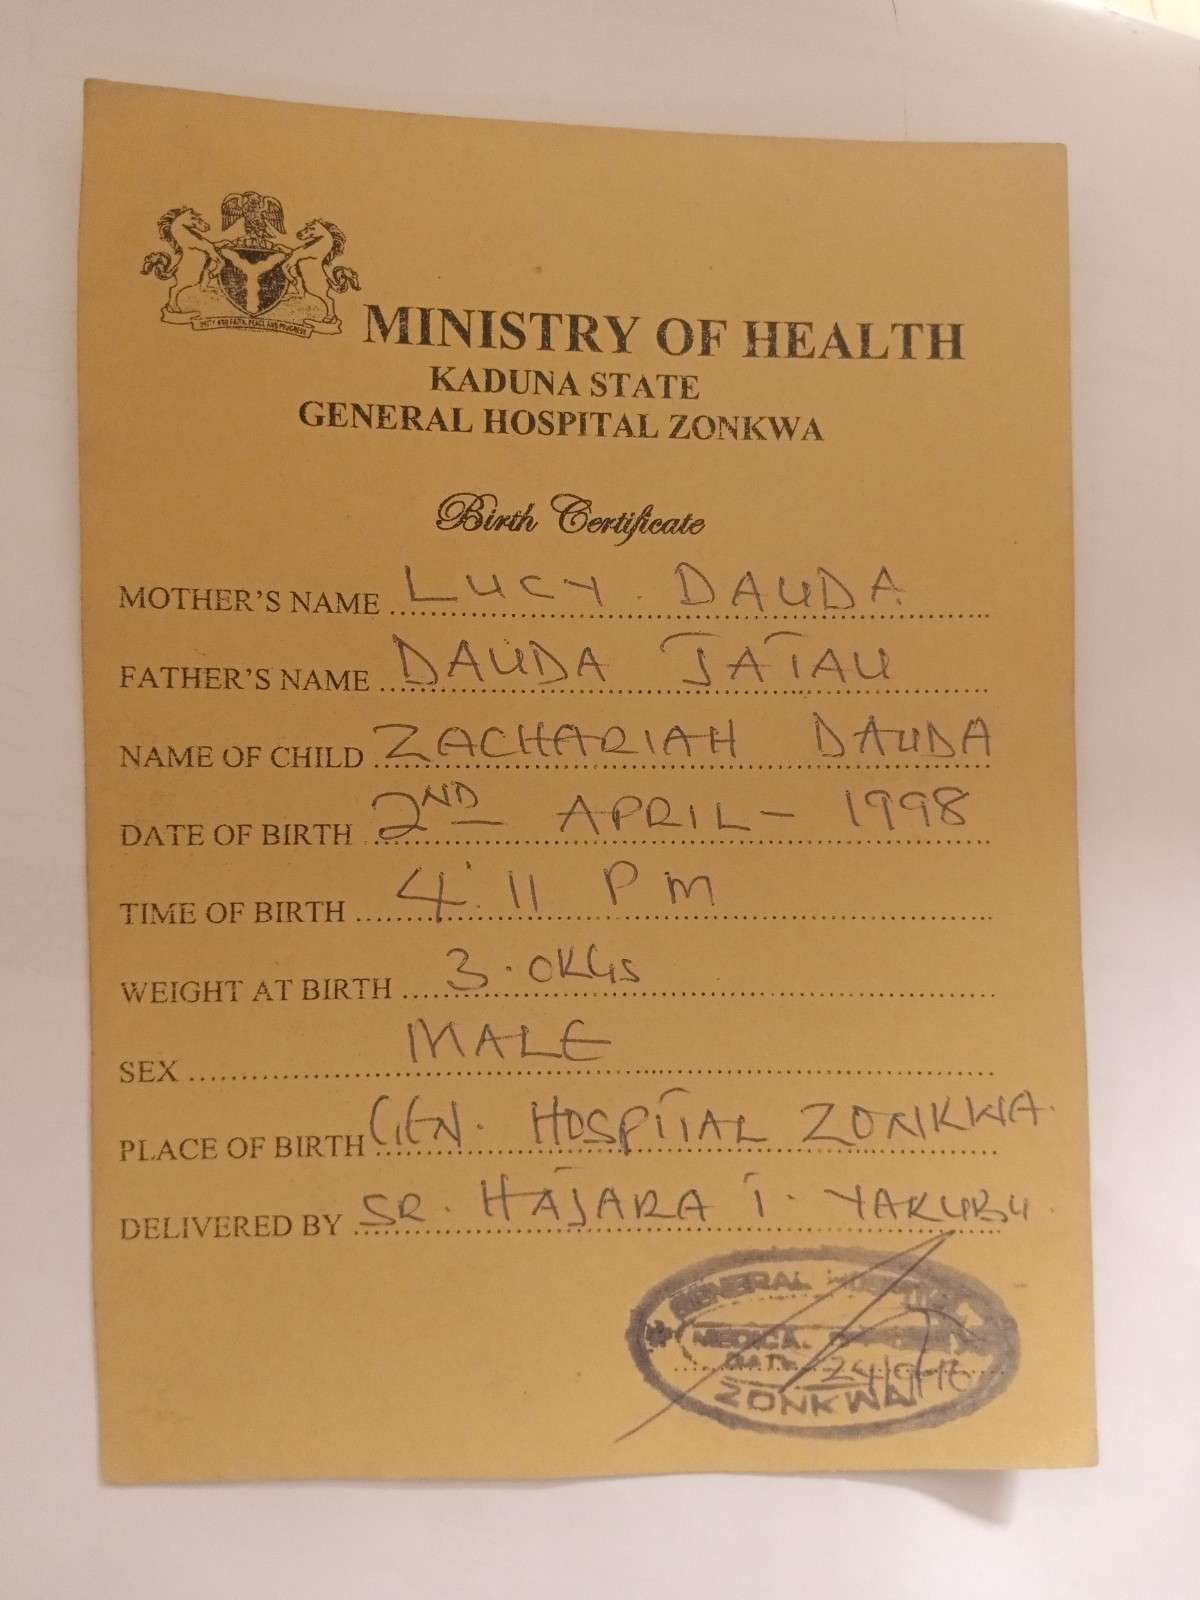 UNITY AND FAITH, PEACE AND PROGRESS
MINISTRY OF HEALTH
KADUNA STATE
GENERAL HOSPITAL ZONKWA
Birth Certificate
MOTHER'S NAME LUCY. DAUDA
FATHER'S NAME DAUDA JATAU
NAME OF CHILD ZACHARIAH DAUDA
DATE OF BIRTH 2ND APRIL - 1998
TIME OF BIRTH 4:11 PM
WEIGHT AT BIRTH 3.0KGs
SEX MALE
PLACE OF BIRTH GEN. HOSPITAL ZONKWA.
DELIVERED BY SR. HAJARA I. YAKUBU.
GENERAL HOSPITAL
MEDICAL
DATE
ZONKWA